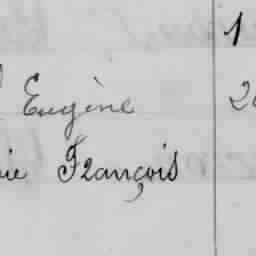 1
Eugène 2
ie François